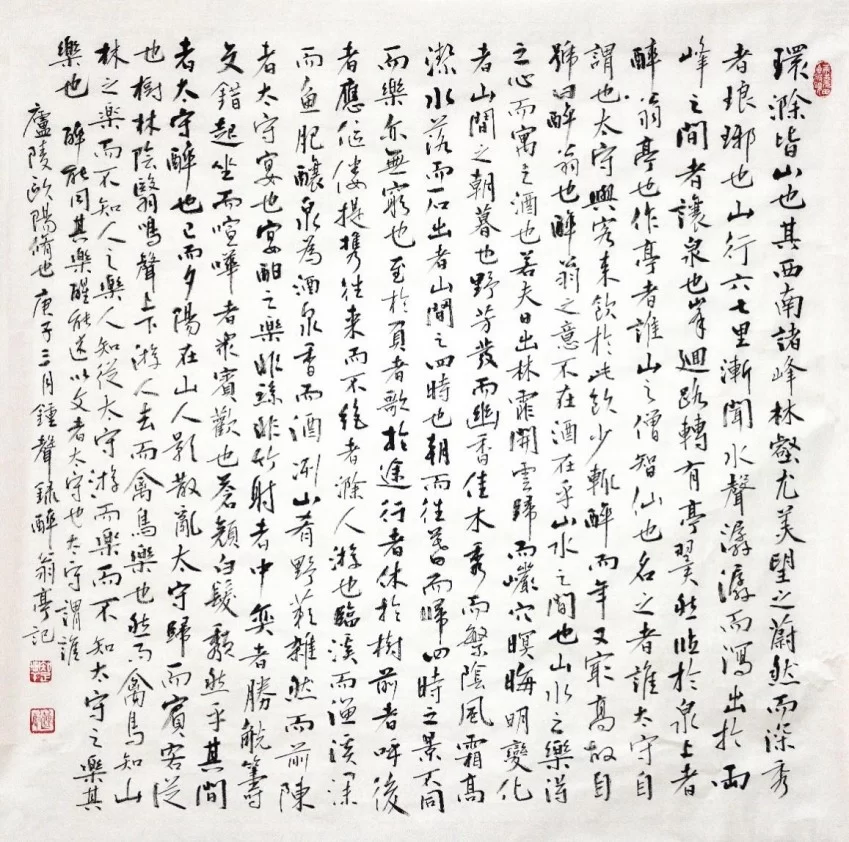 環滁皆山也其西南諸峰林壑尤美望之蔚然而深秀
者琅琊也山行六七里漸聞水聲潺潺而瀉出於兩
峰之間者讓泉也峯迴路轉有亭翼然临於泉上者
醉翁亭也作亭者誰山之僧智仙也名之者誰太守自
謂也太守與客来飲於此飲少輒醉而年又最高故自
號曰醉翁也醉翁之意不在酒在乎山水之間也山水之樂得
之心而寓之酒也若夫日出林霏開雲歸而巖穴暝晦明變化
者山間之朝暮也野芳發而幽香佳木秀而繁陰風霜高
潔水落而石出者山間之四時也朝而往暮而歸四時之景不同
而樂亦無窮也至於負者歌於途行者休於樹前者呼後
者應傴僂提携往来而不絶者滁人游也臨溪而漁溪深
而魚肥釀泉為酒泉香而酒洌山肴野蔌雜然而前陳
者太守宴也宴酣之樂非絲非竹射者中奕者勝觥籌
交錯起坐而喧嘩者衆賓歡也蒼顏白髮頹然乎其間
者太守醉也已而夕陽在山人影散亂太守歸而賓客從
也樹林陰翳鳴聲上下游人去而禽鳥樂也然而禽鳥知山
林之樂而不知人之樂人知從太守游而樂而不知太守之樂其
樂也醉能同其樂醒能述以文者太守也太守謂誰
廬陵歐陽脩也庚子三月鍾聲録醉翁亭記